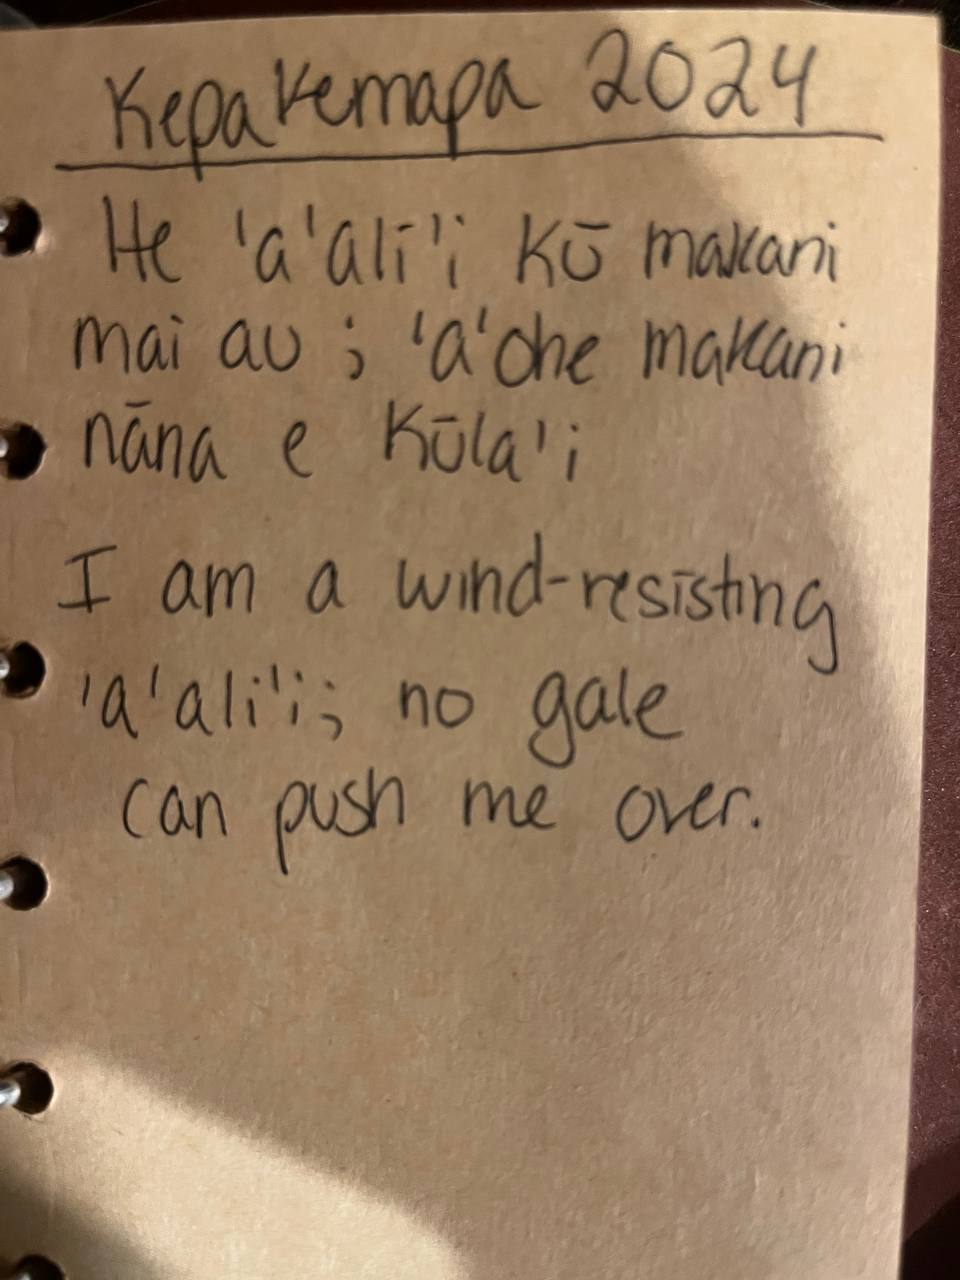 Kepakemapa 2024
He 'a'alī'i kū makani
mai au ; 'a'ohe makani
nāna e kūla'i
I am a wind-resisting
'a'ali'i; no gale
can push me over.